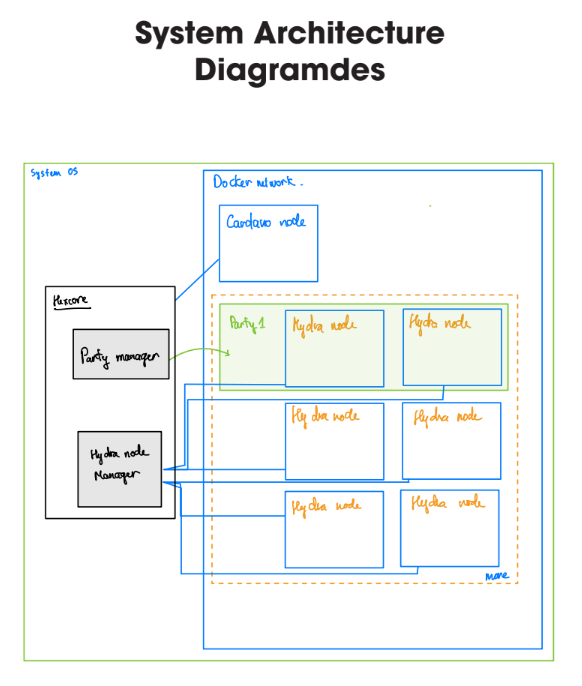 System Architecture
Diagramdes
System OS
Docker network.
Cardano node
Hexcore
Party manager
Party 1
Hydra node
Hydra node
Hydra node
Hydra node
Hydra node
Manager
Hydra node
Hydra node
more